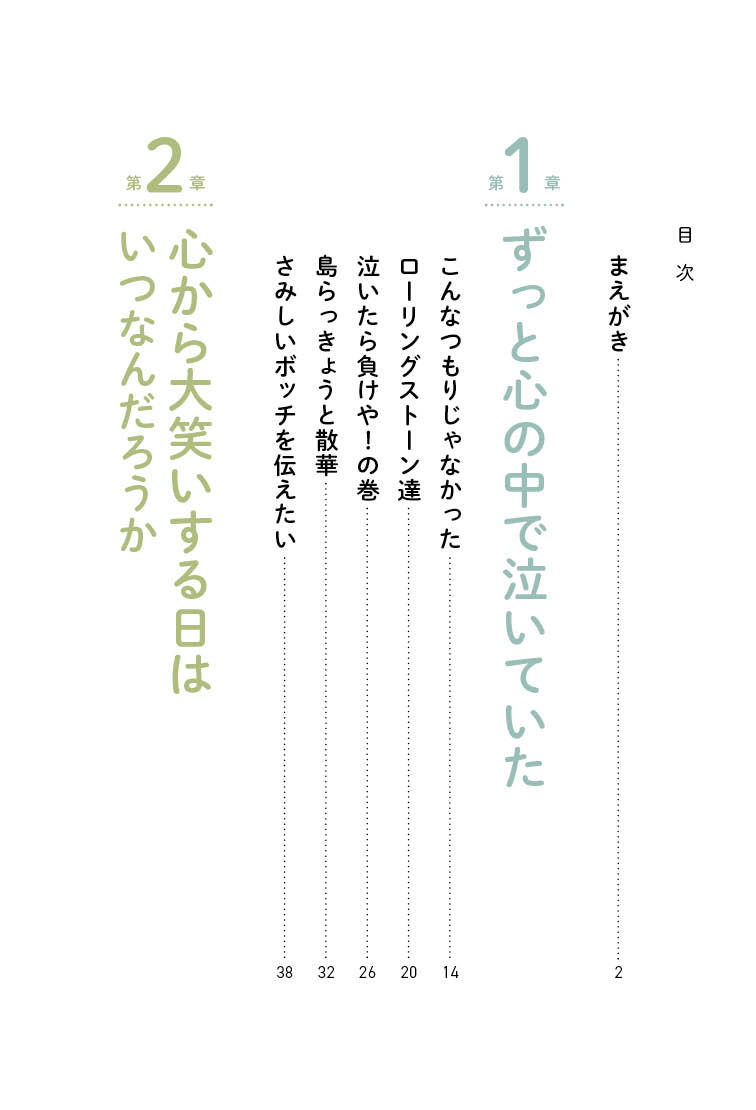 目次
まえがき 2
第1章
ずっと心の中で泣いていた
こんなつもりじゃなかった 14
ローリングストーン達 20
泣いたら負けや！の巻 26
島らっきょうと散華 32
さみしいボッチを伝えたい 38
第2章
心から大笑いする日は
いつなんだろうか